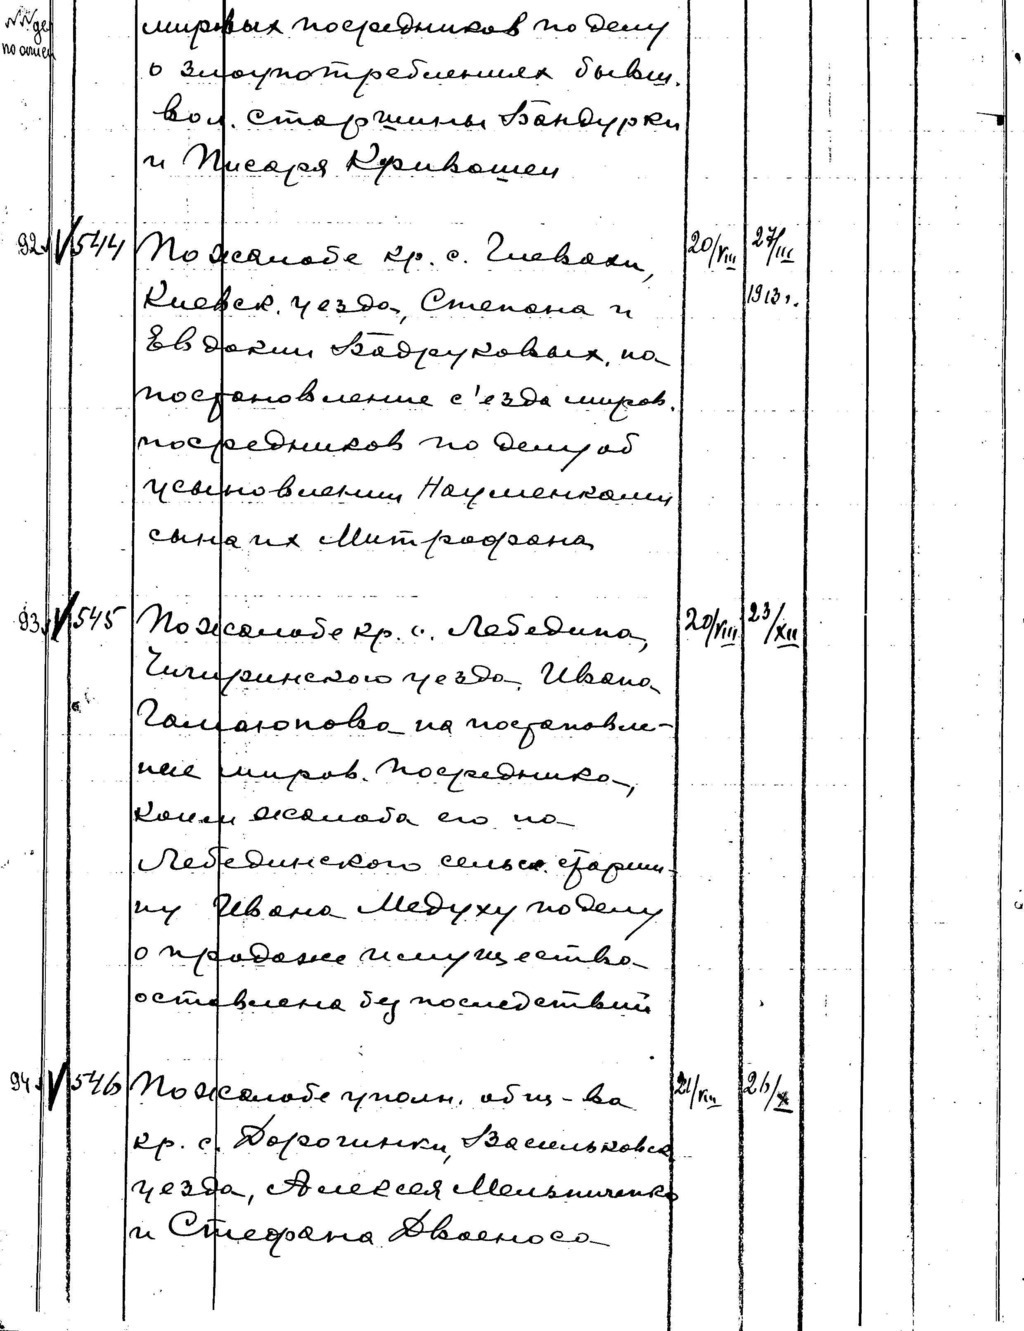 №№ дел
по описи
мировых посредников по делу
о злоупотреблениях бывш.
вол. старшины Бандурки
и Писаря Кривошеи
92. V 544 По жалобе кр. с. Глевахи, 20/VIII 27/III
Киевск. уезда, Степана и 1913 г.
Евдокии Бадруковых, на
постановление с'езда миров.
посредников по делу об
усыновлении Науменками
сына их Митрофана
93. V 545 По жалобе кр. с. Лебедина, 20/VIII 23/XII
Чигиринского уезда, Ивана
Гамаюнова на постановле-
ние миров. посредника,
коим жалоба его на
Лебединского сельск. старши-
ну Ивана Медуху по делу
о продаже имущества
оставлена без последствий
94. V 546 По жалобе уполн. общ-ва 21/VIII 26/X
кр. с. Дорогинки, Васильковск.
уезда, Алексея Мельниченко
и Стефана Двоеноса